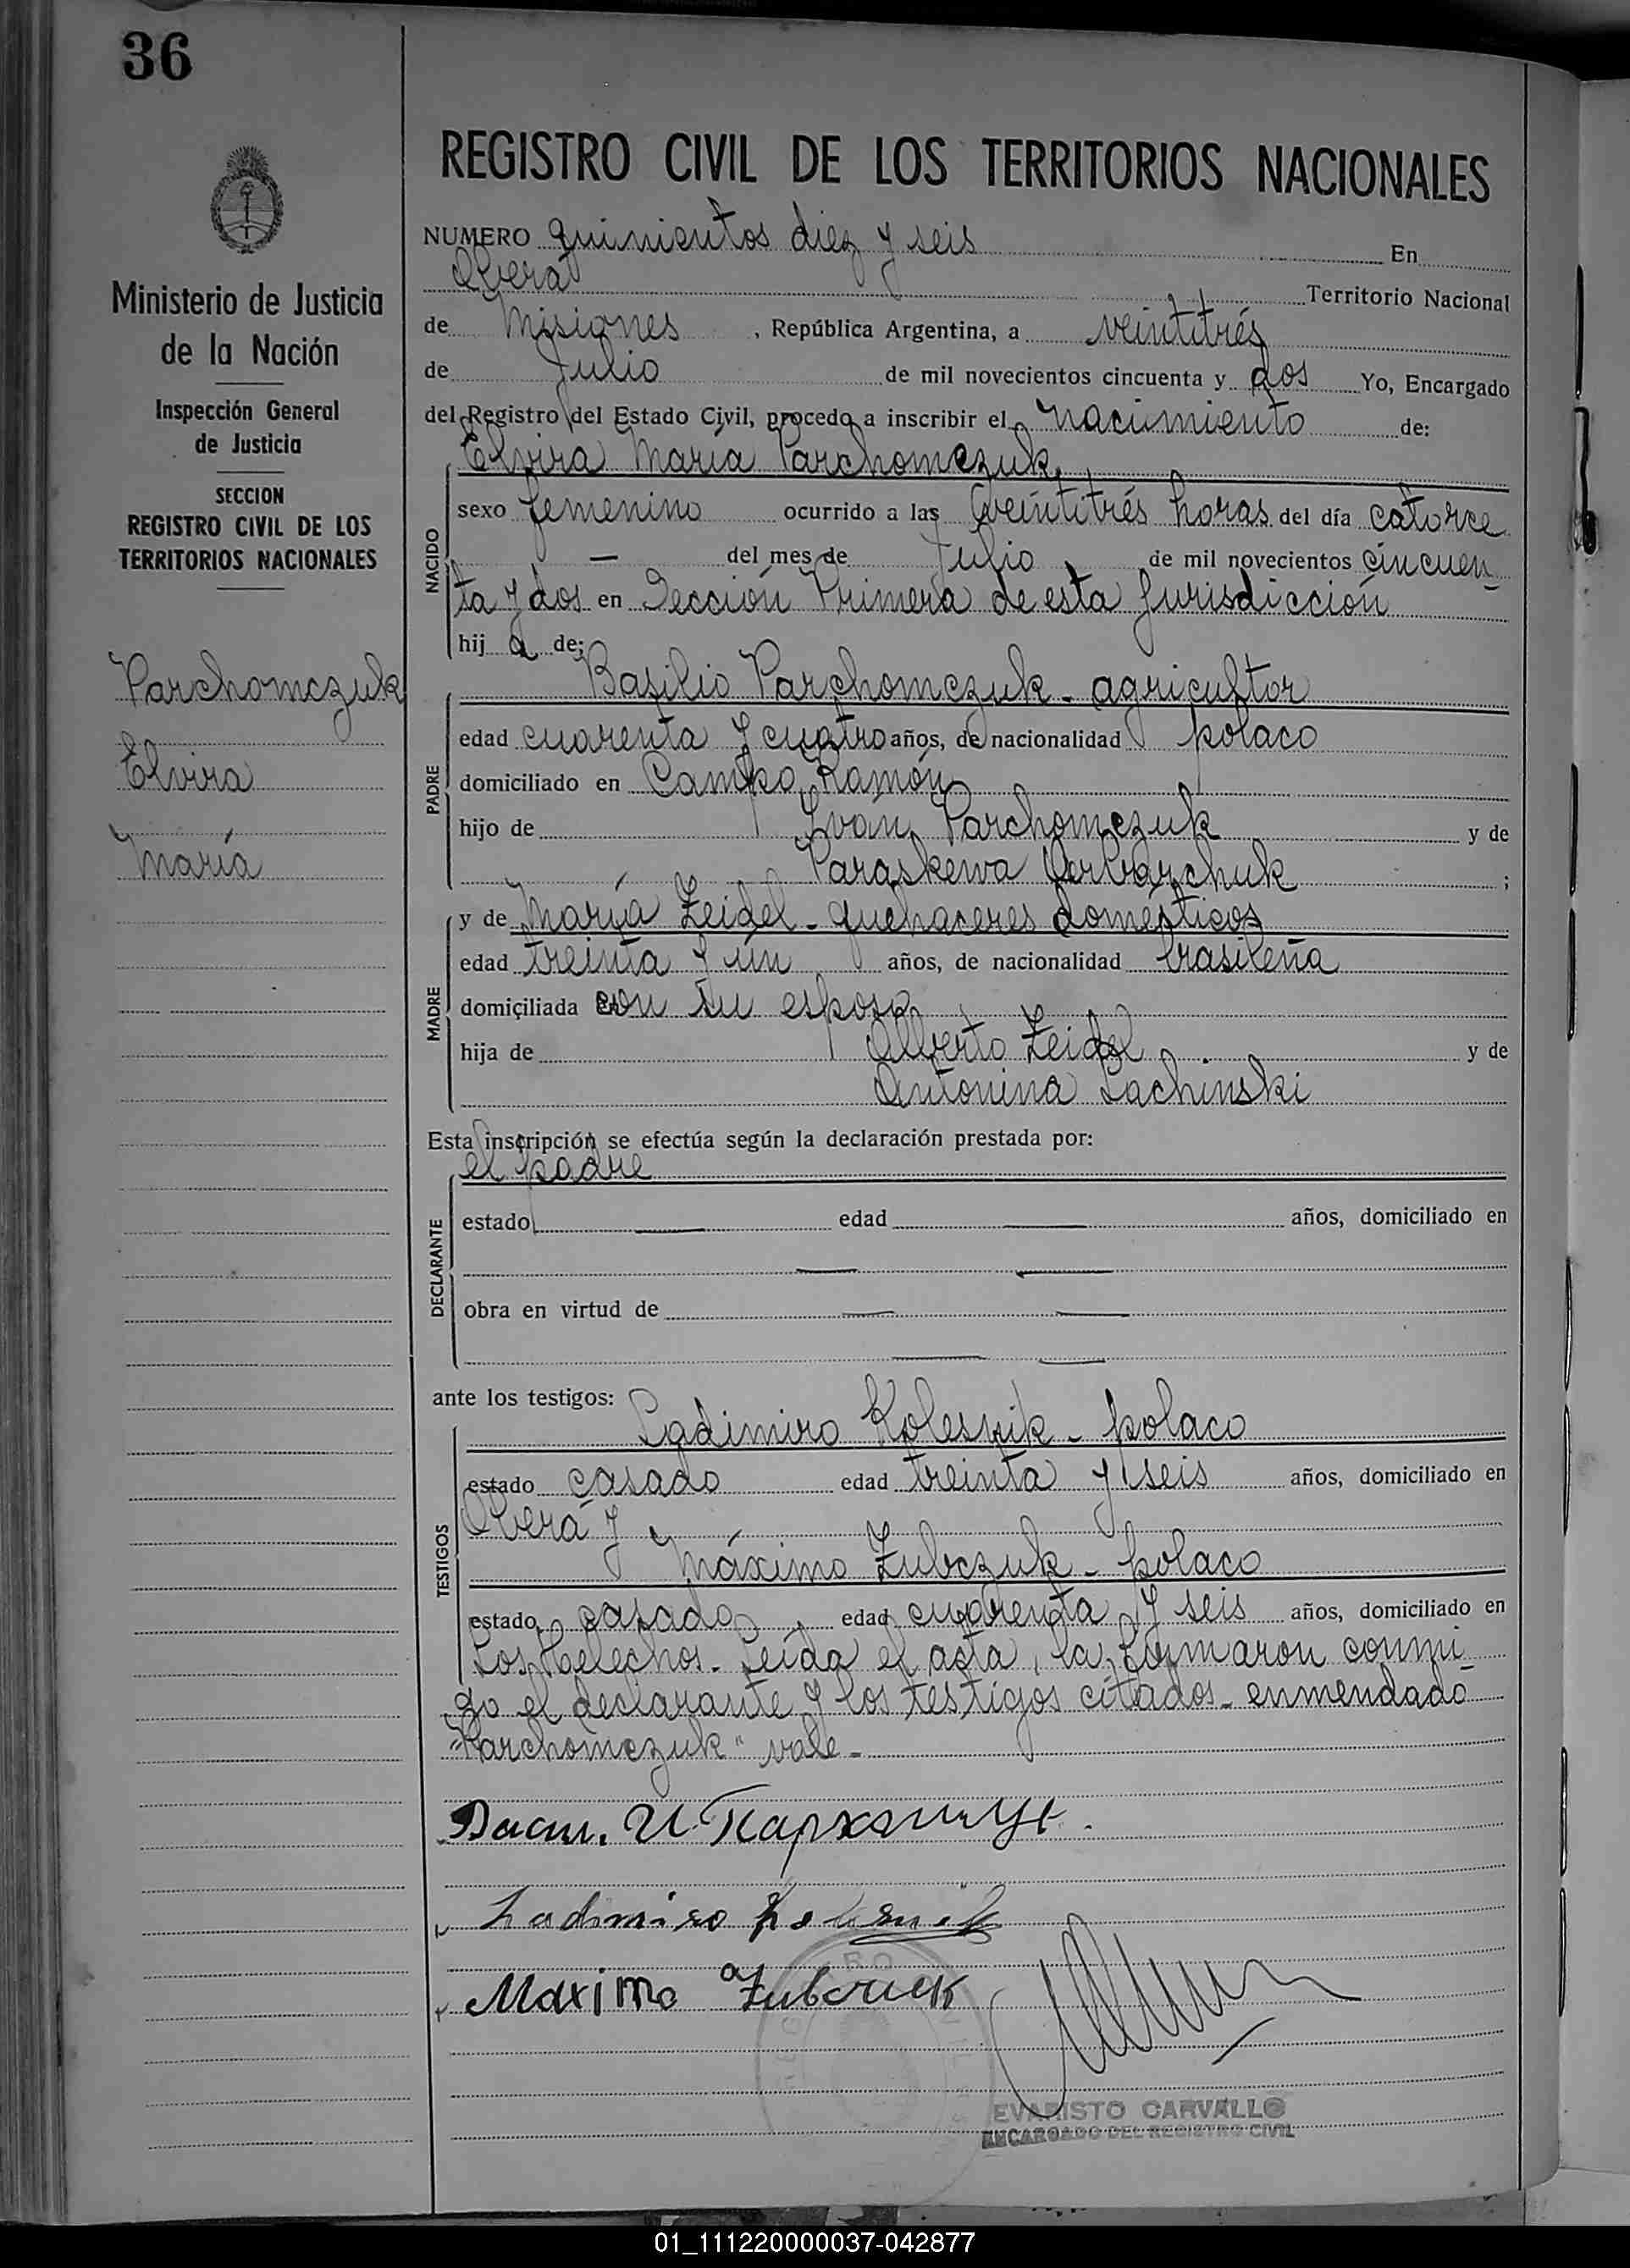 36
Ministerio de Justicia
de la Nación
Inspección General
de Justicia
SECCION
REGISTRO CIVIL DE LOS
TERRITORIOS NACIONALES
Parchomczuk
Elvira
María
REGISTRO CIVIL DE LOS TERRITORIOS NACIONALES
NUMERO quinientos diez y seis En
Oberá Territorio Nacional
de Misiones, República Argentina, a veintitrés
de Julio de mil novecientos cincuenta y dos Yo, Encargado
del Registro del Estado Civil, procedo a inscribir el nacimiento de:
Elvira María Parchomczuk,
NACIDO
sexo femenino ocurrido a las veintitrés horas del día catorce
— del mes de Julio de mil novecientos cincuen-
ta y dos en Sección Primera de esta Jurisdicción
hija de:
PADRE
Basilio Parchomczuk - agricultor
edad cuarenta y cuatro años, de nacionalidad polaco
domiciliado en Campo Ramón
hijo de Iván Parchomczuk y de
Paraskewa ;
MADRE
y de María Zeidel - quehaceres domésticos
edad treinta y un años, de nacionalidad brasileña
domiciliada con su esposo
hija de Alberto Zeidel y de
Antonina Lachinski
Esta inscripción se efectúa según la declaración prestada por:
el padre
DECLARANTE
estado — edad — años, domiciliado en
— —
obra en virtud de — —
— —
ante los testigos:
TESTIGOS
Ladimiro Kolesnik - polaco
estado casado edad treinta y seis años, domiciliado en
Oberá y
Máximo Zubczuk - polaco
estado casado edad cuarenta y seis años, domiciliado en
Los Helechos. Leída el acta, la firmaron conmi-
go el declarante y los testigos citados - enmendado
"Parchomczuk" vale -
Васил. И. Пархомчук.
Ladimiro Kolesnik
Maximo Zubczuk
EVARISTO CARVALLO
ENCARGADO DEL REGISTRO CIVIL
01_111220000037-042877